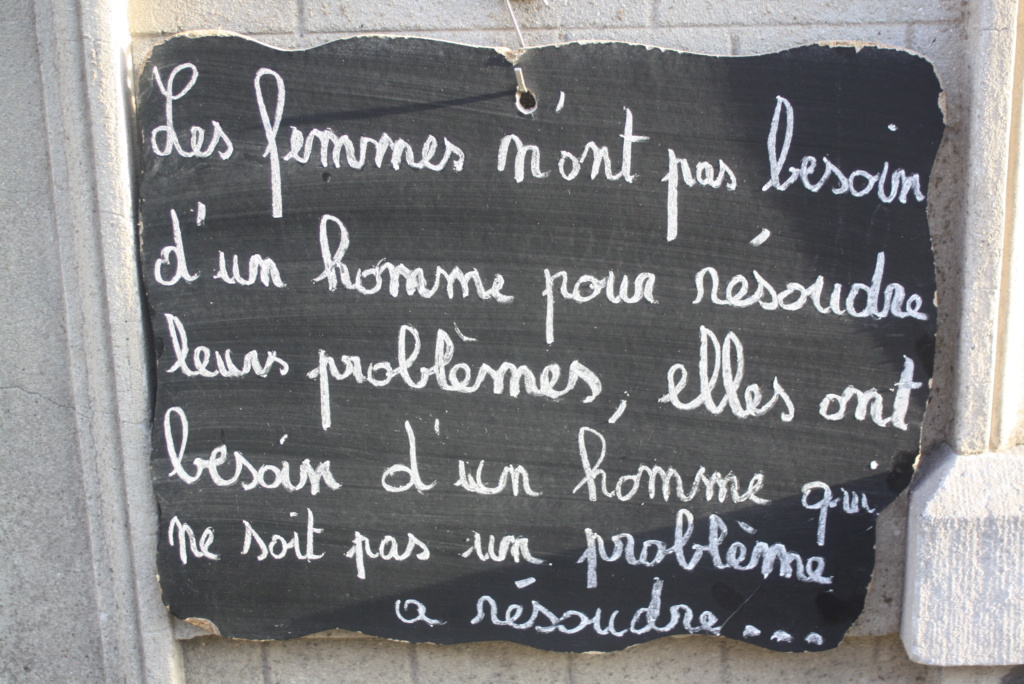 Les femmes n'ont pas besoin
d'un homme pour résoudre
leurs problèmes, elles ont
besoin d'un homme qui
ne soit pas un problème
a résoudre...